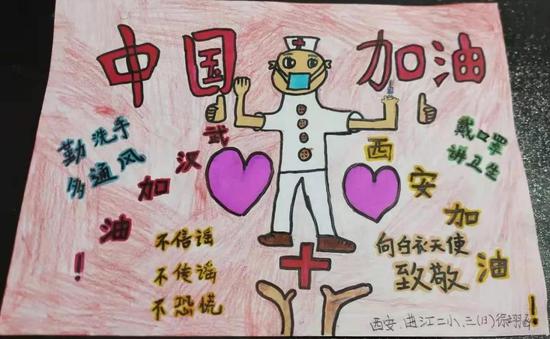 中国 加油
勤洗手
多通风
武汉加油！
西安加油！
戴口罩
讲卫生
不信谣
不传谣
不恐慌
向白衣天使
致敬
西安.曲江二小.三(13)徐